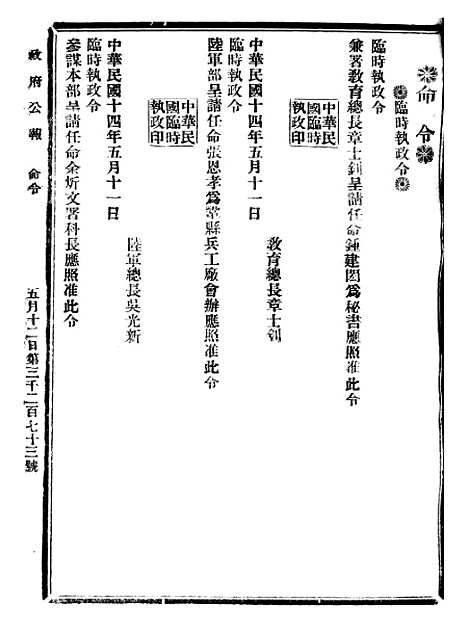 命令
臨時執政令
臨時執政令
兼署教育總長章士釗呈請任命鍾建閎爲秘書應照准此令
中華民國臨時執政印
教育總長章士釗
中華民國十四年五月十一日
臨時執政令
陸軍部呈請任命張恩孝爲鞏縣兵工廠會辦應照准此令
中華民國臨時執政印
陸軍總長吳光新
中華民國十四年五月十一日
臨時執政令
參謀本部呈請任命余炘文署科長應照准此令
政府公報 命令
五月十二日第三千二百七十三號